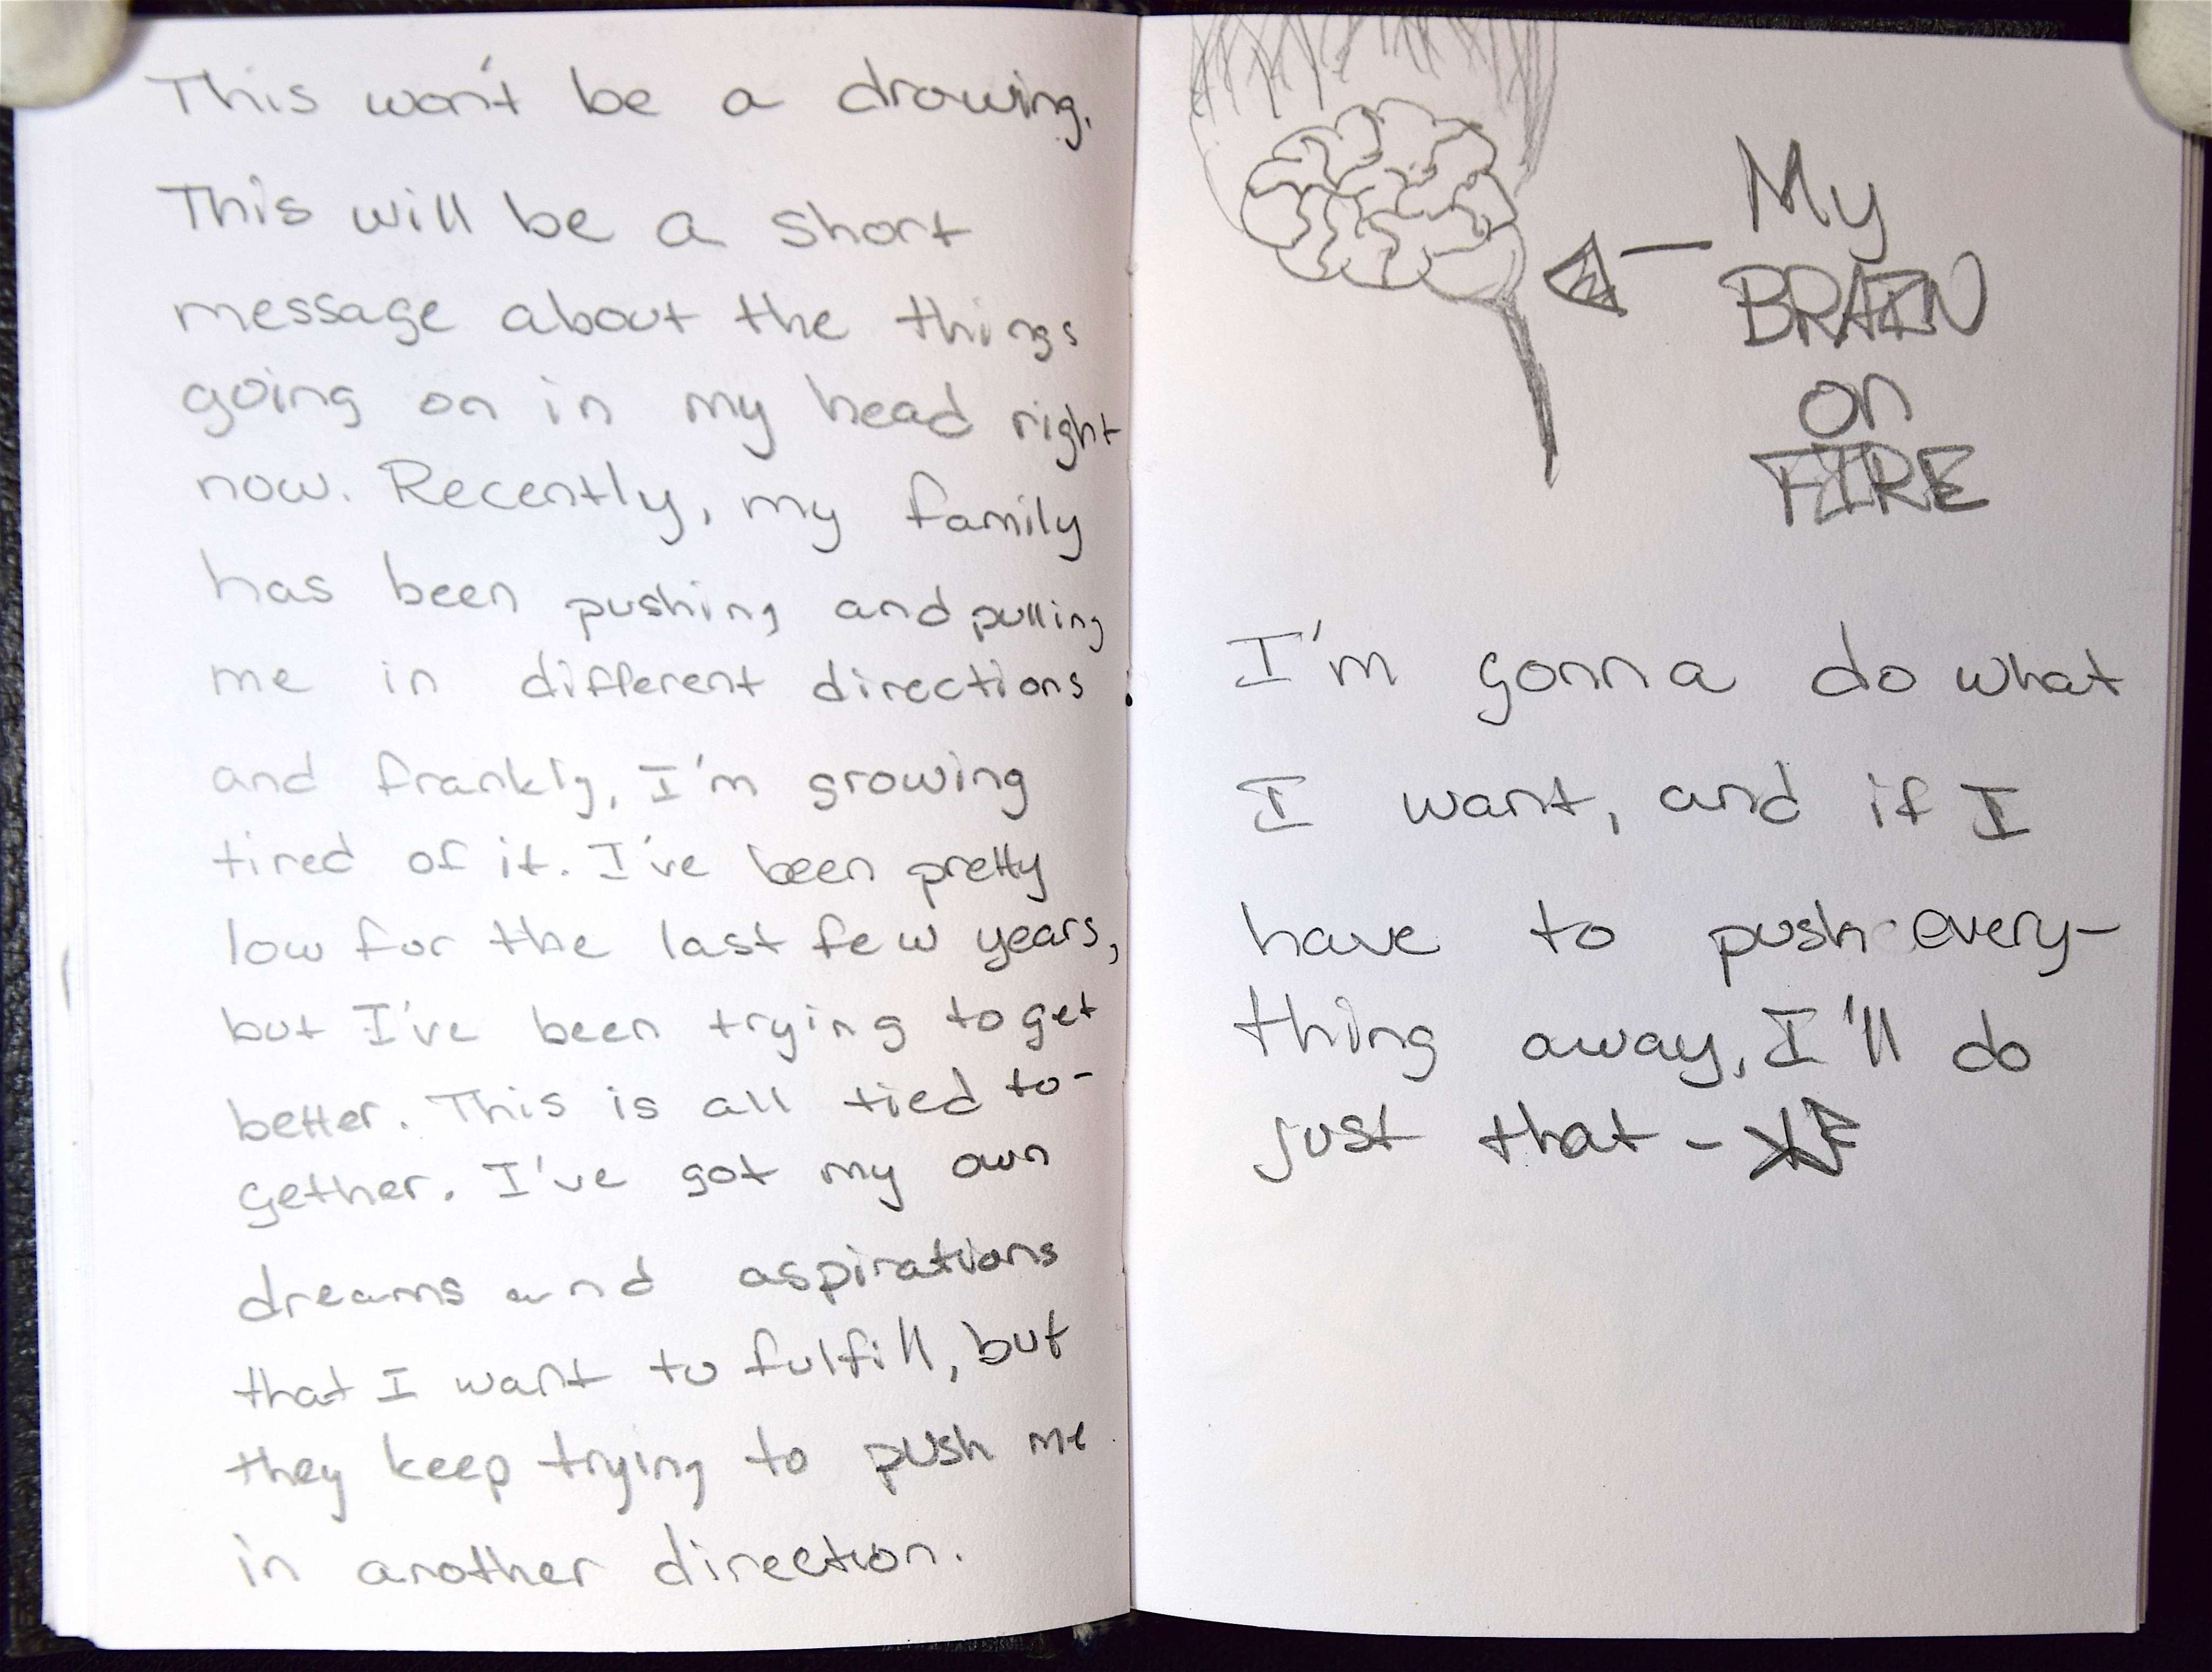 This won't be a drawing.
This will be a short
message about the things
going on in my head right
now. Recently, my family
has been pushing and pulling
me in different directions
and frankly, I'm growing
tired of it. I've been pretty
low for the last few years,
but I've been trying to get
better. This is all tied to-
gether. I've got my own
dreams and aspirations
that I want to fulfill, but
they keep trying to push me
in another direction.
My
BRAIN
on
FIRE
I'm gonna do what
I want, and if I
have to push every-
thing away, I'll do
just that -